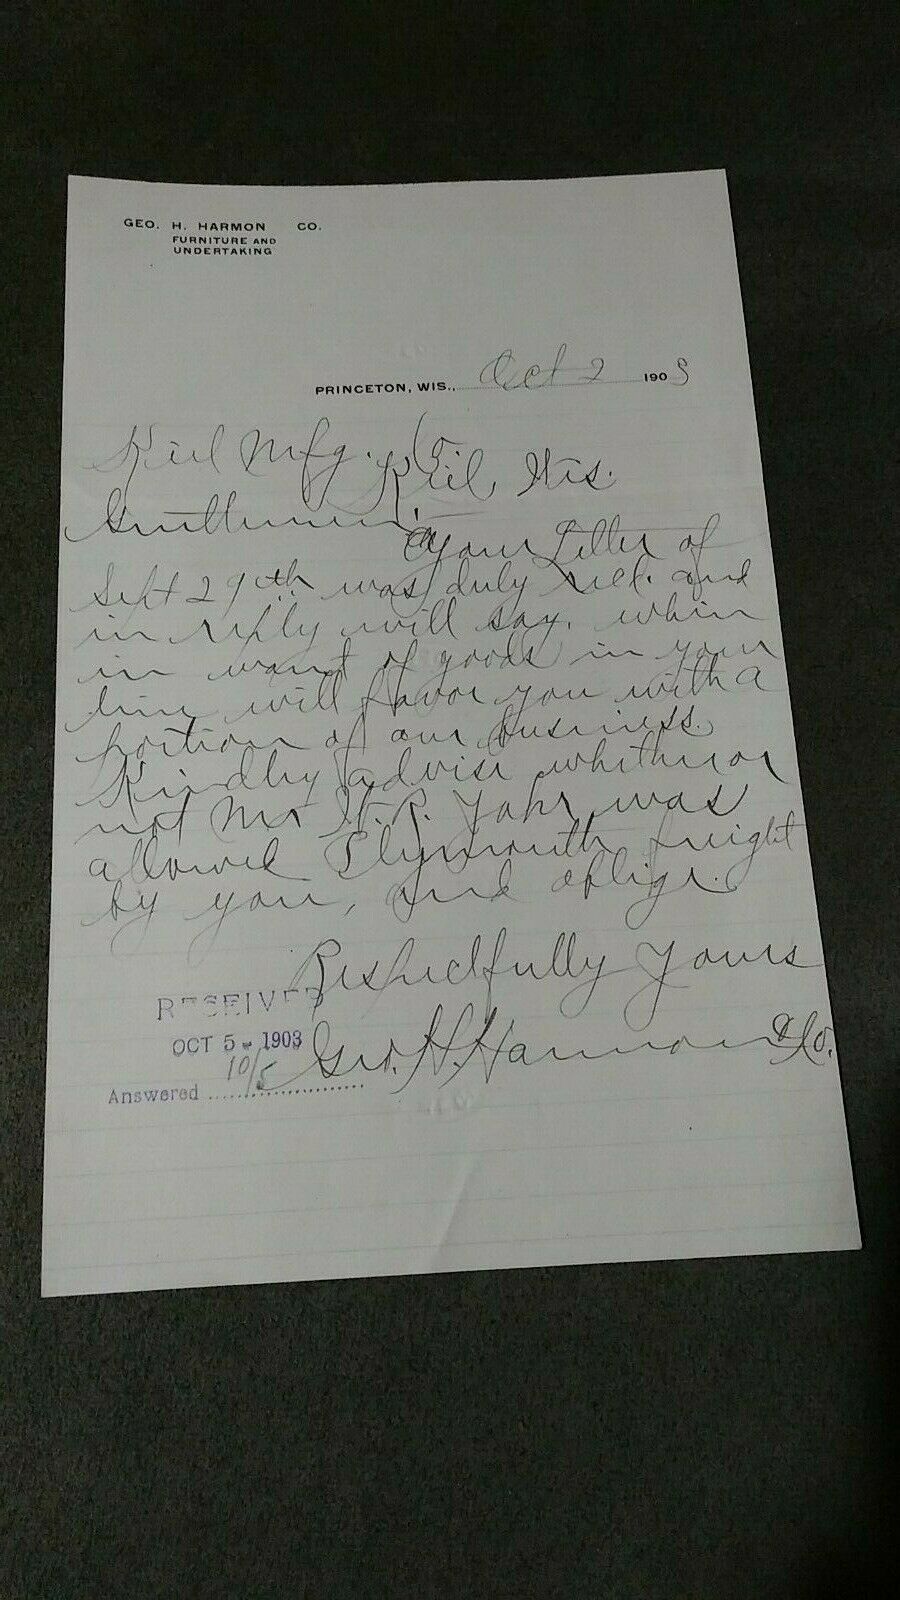 GEO. H. HARMON CO.
FURNITURE AND
UNDERTAKING
PRINCETON, WIS., Oct 2 1903
Kiel Mfg. Co
Kiel, Wis.
Gentlemen:
Your Letter of
Sept 29th was duly recd. and
in reply will say, when
in want of goods in your
line will favor you with a
portion of our business.
Kindly advise whether or
not Mr W. P. Yahr was
allowed Plymouth freight
by you, and oblige.
Respectfully Yours
Geo. H. Harmon & Co.
RECEIVED
OCT 5 - 1903
10/5
Answered ....................